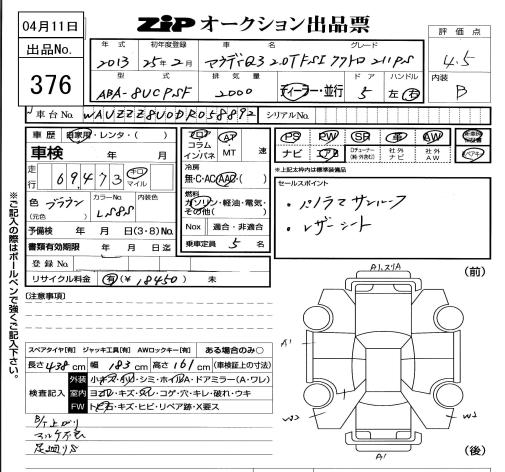 04月11日
ZIP オークション出品票
評価点
4.5
出品No.
376
年式 初年度登録 車名 グレード
2013 25年2月 アウディQ3 2.0TFSI クワトロ 211PS
型式 排気量 ドア ハンドル
ABA-8UCPSF 2000 ディーラー・並行 5 左 右
内装
B
車台No. WAUZZZ8U0DR058892 シリアルNo.
車歴 自家用・レンタ・( )
車検 年 月
走行 69,473 キロ マイル
色 ブラウン カラーNo. LS8S 内装色
(元色)
予備検 年 月 日(3・8)No.
書類有効期限 年 月 日迄
登録No.
リサイクル料金 有(¥ 18450 ) 未
フロア コラム インパネ
AT ・ MT 速
冷房
無・C・AC・AAC・( )
燃料
ガソリン・軽油・電気・その他( )
Nox 適合・非適合
乗車定員 5 名
PS PW SR 革 AW
ナビ エアB 社外ナビ 社外AW
※上記太枠内は標準装備品
セールスポイント
・パノラマサンルーフ
・レザーシート
※ご記入の際はボールペンで強くご記入下さい。
[注意事項]
スペアタイヤ[有] ジャッキ工具[有] AWロックキー[有] ある場合のみ○
長さ 438 cm 幅 183 cm 高さ 161 cm (車検証上の寸法)
検査記入
外装 小キズ・小凹・シミ・ホイルA・ドアミラー(A・ワレ)
室内 ヨゴレ・キズ・スレ・コゲ・穴・キレ・破れ・ウキ
FW トビ石・キズ・ヒビ・リペア跡・X要ス
足廻りS
(前)
A1
A1
(後)